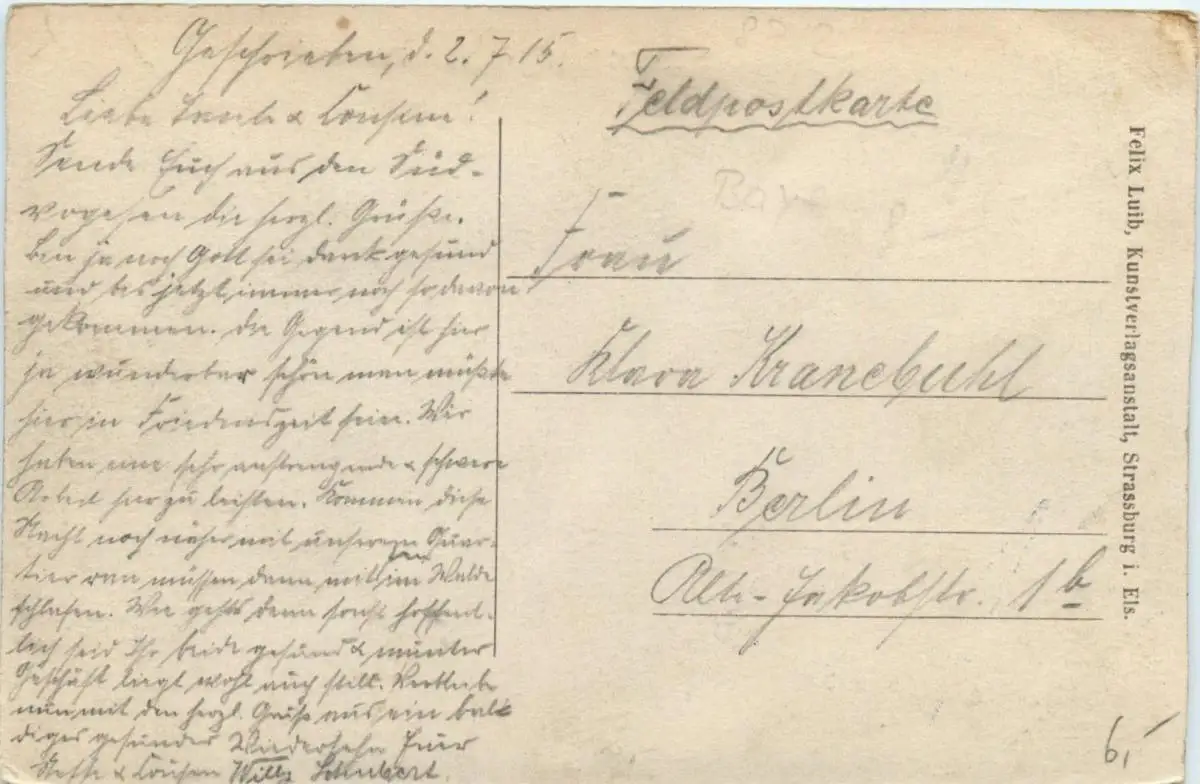 Geschrieben, d. 2. 7. 15.
Liebe Tante & Cousine!
Sende Euch aus den Süd-
vogesen die herzl. Grüße.
Bin ja noch Gott sei dank gesund
und bis jetzt immer noch so davon
gekommen. Die Gegend ist hier
ja wunderbar schön man müßte
hier in Friedenszeit sein. Wir
haben eine sehr anstrengende & schwere
Arbeit hier zu leisten. Kommen diese
Nacht noch näher mit unserem Quar-
tier ran müssen dann im Walde
schlafen. Wie gehts denn sonst hoffent-
lich seid Ihr beide gesund & munter
Geschäft liegt wohl auch still. Verbleibe
nun mit den herzl. Grüße auf ein bal-
diges gesundes Wiedersehn Euer
Neffe & Cousin Willy Schubert.
Feldpostkarte
Frau
Klara Kranebuhl
Berlin
Alte-Jakobstr. 1b
Felix Luib, Kunstverlagsanstalt, Strassburg i. Els.
6,-